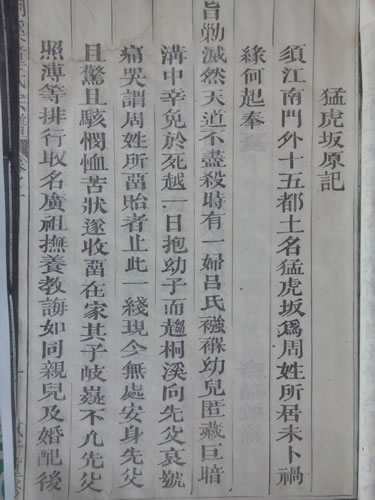 猛虎坂原記
須江南門外十五都土名猛虎坂爲周姓所居未卜禍
緣何起奉
旨勦滅然天道不盡殺時有一婦吕氏襁褓幼兒匿藏巨暗
溝中幸免於死越一日抱幼子而趨桐溪向先父哀號
痛哭謂周姓所畱貽者止此一綫現今無處安身先父
且驚且駭憫恤苦狀遂收畱在家其子岐嶷不凢先父
照溥等排行取名廣祖撫養教誨如同親兒及婚配後